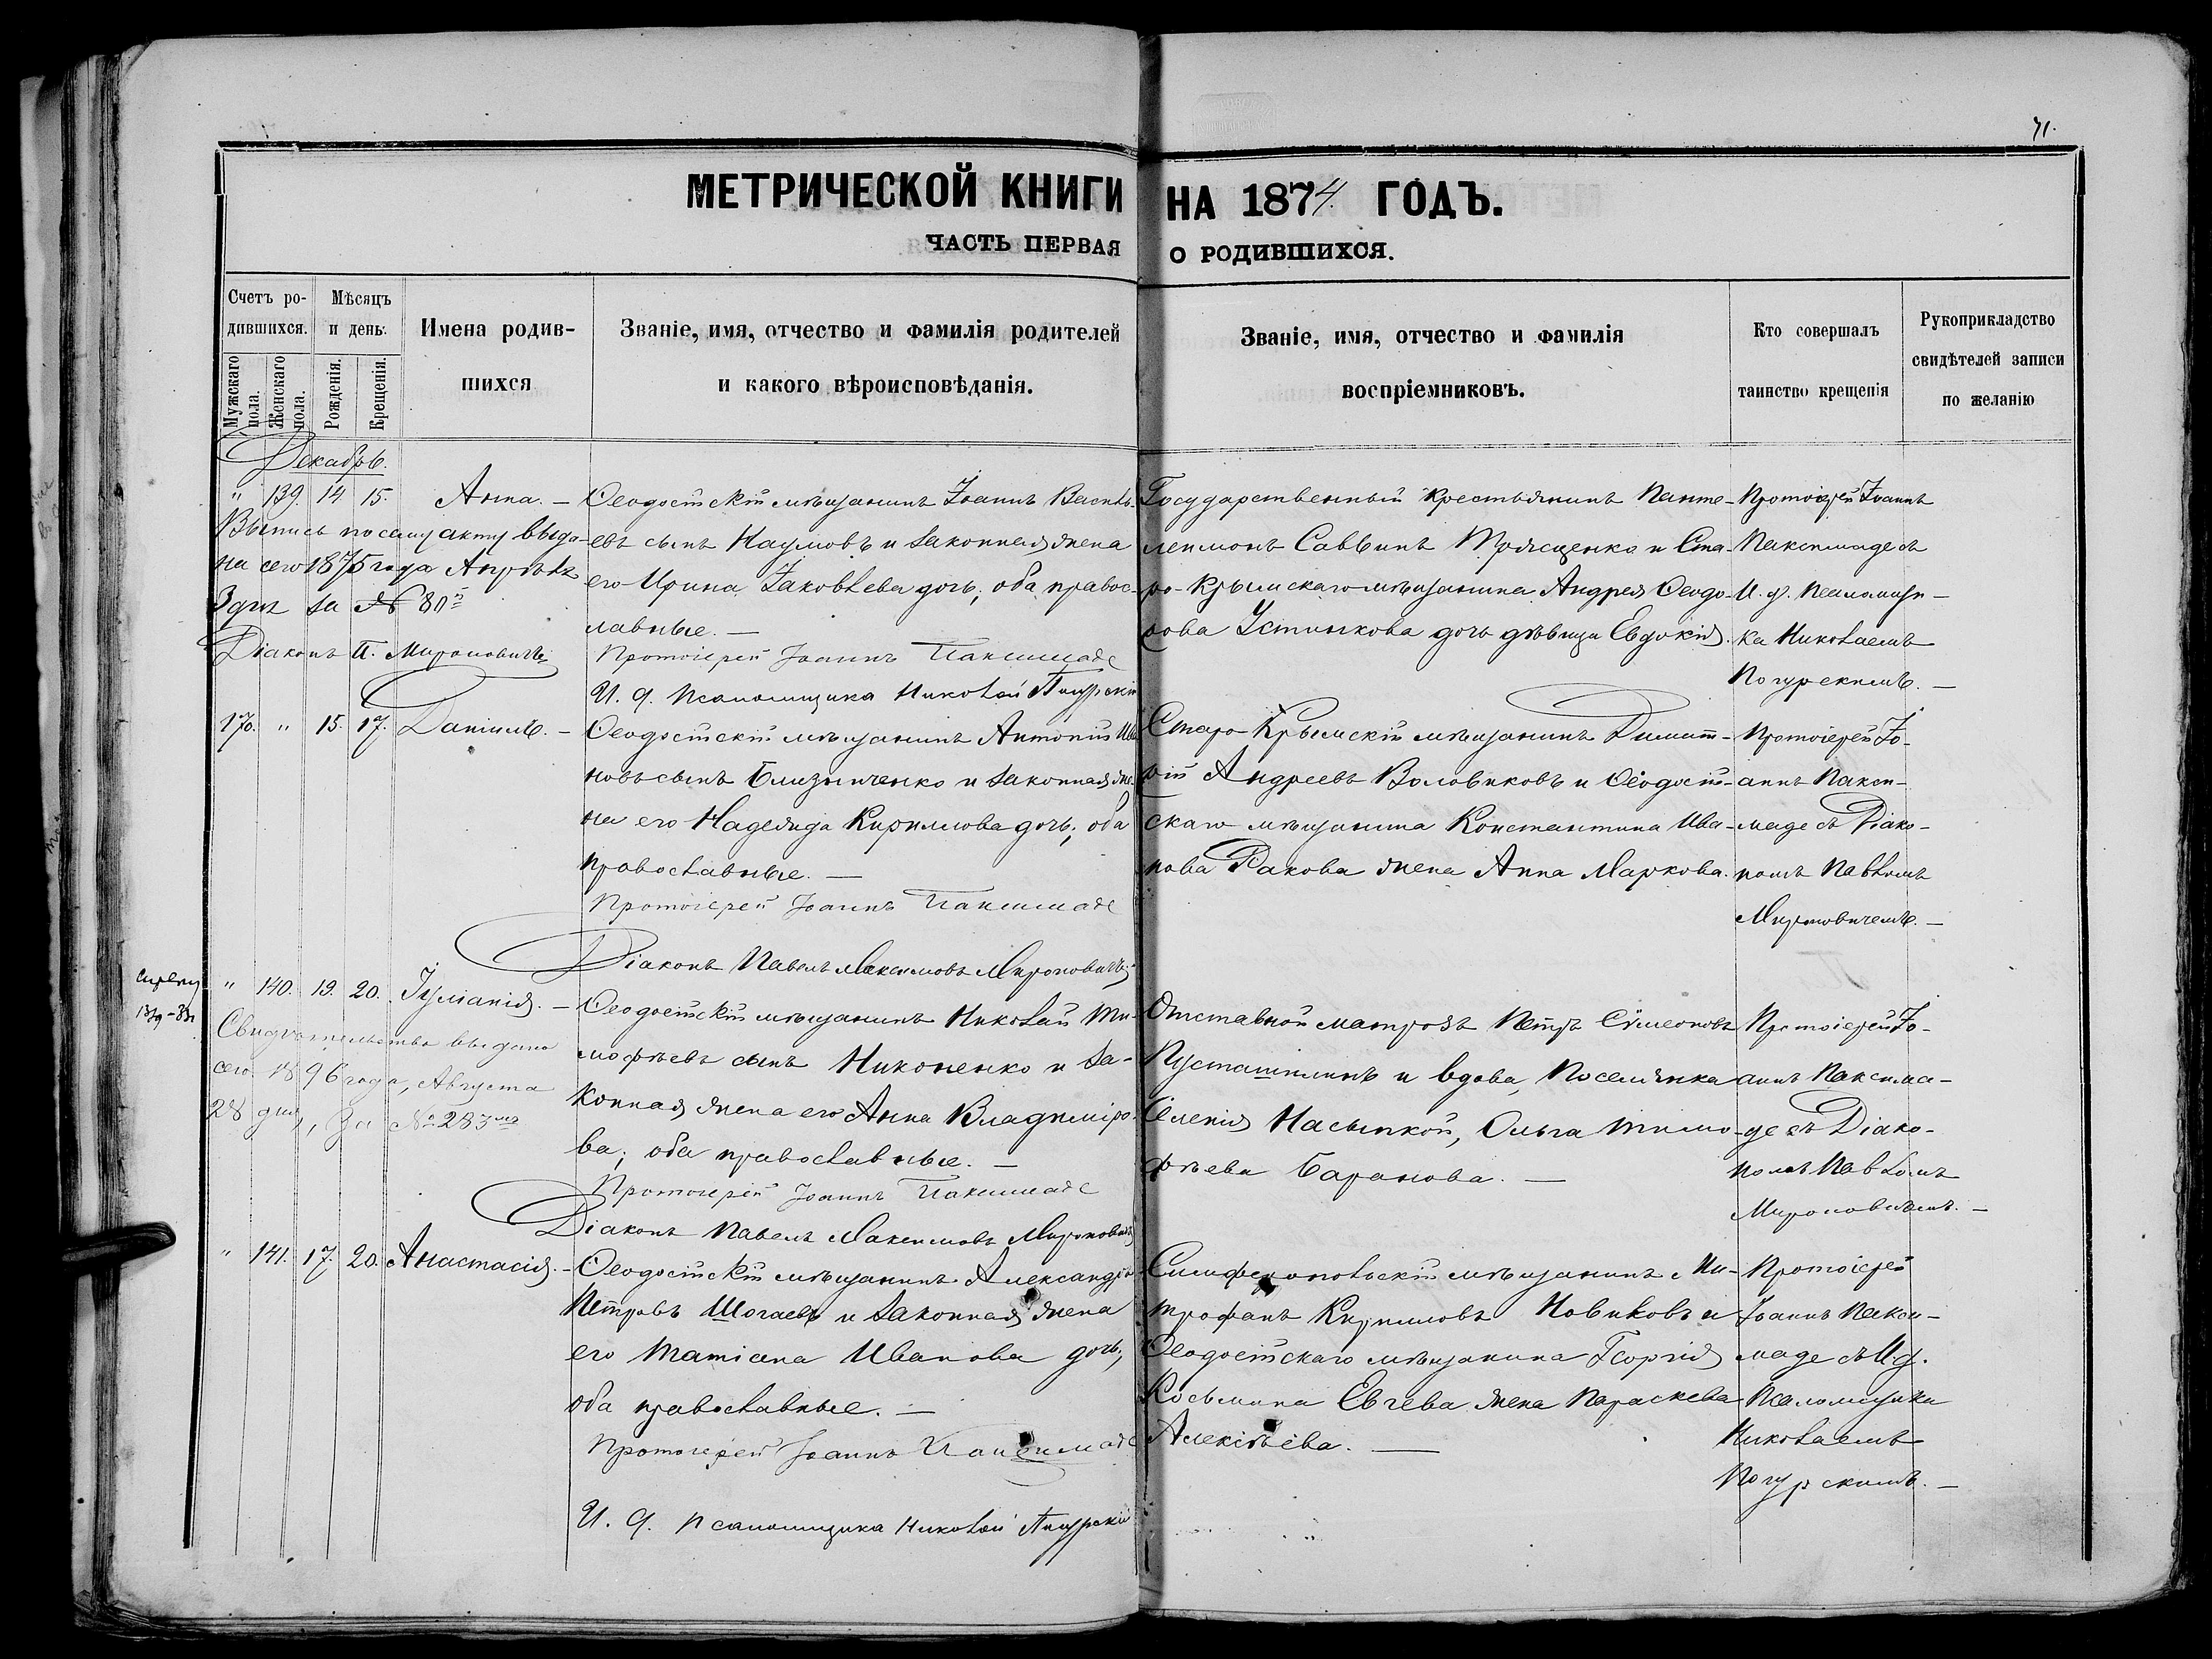 71.
МЕТРИЧЕСКОЙ КНИГИ НА 1874 ГОДЪ.
ЧАСТЬ ПЕРВАЯ О РОДИВШИХСЯ.
Счетъ ро-
дившихся.
Мужскаго пола.
Женскаго пола.
Мѣсяцъ
и день.
Рожденія.
Крещенія.
Имена родив-
шихся
Званіе, имя, отчество и фамилія родителей
и какого вѣроисповѣданія.
Званіе, имя, отчество и фамилія
воспріемниковъ.
Кто совершалъ
таинство крещенія
Рукоприкладство
свидѣтелей записи
по желанію
Декабрь.
" 139. 14 15. Анна. —
Выпись по сему акту выда-
на сего 1875 года Апрѣля
3 дня за № 80
Діаконъ П. Мироновичъ
Ѳеодосійскій мѣщанинъ Іоаннъ Василь-
евъ сынъ Наумовъ и законная жена
его Ирина Іаковлева дочь, оба правос-
лавные. —
Протоіерей Іоаннъ Паксимаде
И. д. Псаломщика Николай
Государственный крестьянинъ Панте-
леимонъ Саввинъ и Ста-
ро-Крымскаго мѣщанина Андрея Ѳеодо-
рова Устинкова дочь дѣвица Евдокія.
Протоіерей Іоаннъ
Паксимаде съ
И. д. Псаломщи-
ка Николаемъ
Погурскимъ. —
170. " 15. 17. Даніилъ. —
Ѳеодосійскій мѣщанинъ Антоній Ива
новъ сынъ Близниченко и законная же-
на его Надежда Кириллова дочь; оба
православные. —
Протоіерей Іоаннъ Паксимаде
Діаконъ Павелъ Максимовъ Мироновичъ
Старо-Крымскій мѣщанинъ Димит-
рій Андреевъ Воловиковъ и Ѳеодосій-
скаго мѣщанина Константина Ива-
нова Ракова жена Анна Маркова.
Протоіерей Іо-
аннъ Пакси-
маде съ Діако-
номъ Павломъ
Мироновичемъ. —
" 140. 19. 20. Іуліанія. —
Свидѣтельство выдано
сего 1896 года, Августа
28 дня, за № 283
Ѳеодосійскій мѣщанинъ Николай Ти-
мофѣевъ сынъ Никоненко и за-
конная жена его Анна Владиміро-
ва; оба православные. —
Протоіерей Іоаннъ Паксимаде
Діаконъ Павелъ Максимовъ Мироновичъ
Отставной матрозъ Петръ Сѵмеоновъ
и вдова, Поселянка
Еленія Насыпкой, Ольга Тимо-
фѣева Баранова. —
Протоіерей Іо-
аннъ Паксима-
де съ Діако-
номъ Павломъ
Мироновичемъ. —
" 141. 17. 20. Анастасія. —
Ѳеодосійскій мѣщанинъ Александръ
Петровъ Шогаевъ и законная жена
его Татіана Иванова дочь,
оба православные. —
Протоіерей Іоаннъ Паксимаде
И. д. Псаломщика Николай
Симферопольскій мѣщанинъ Ми-
трофанъ Кирилловъ Новиковъ и
Ѳеодосійскаго мѣщанина Георгія
Косьмина Евчева жена Параскева
Алексѣева. —
Протоіерей
Іоаннъ Пакси-
маде съ И. д.
Псаломщика
Николаемъ
Погурскимъ. —